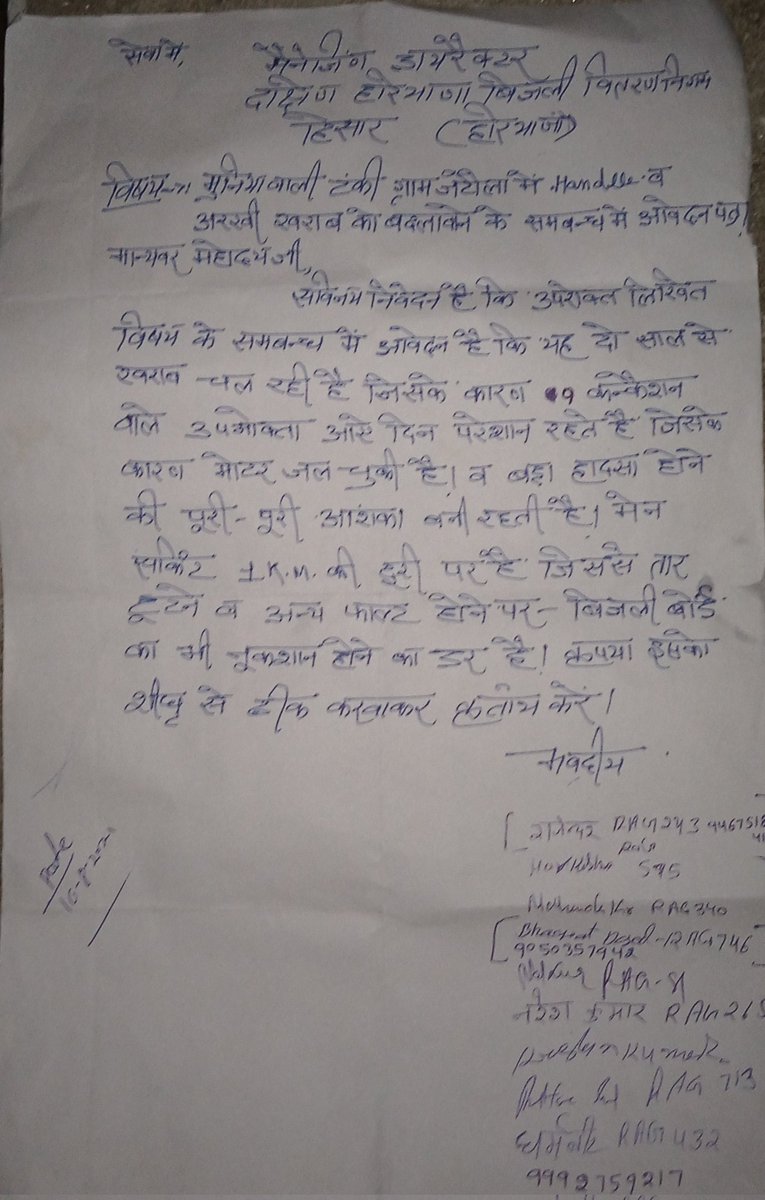 सेवा मे,
मैनेजिंग डायरैक्टर
दक्षिण हरियाणा बिजली वितरण निगम
हिसार (हरियाणा)
विषय:- मुनियावाली टंकी ग्राम जटौला में Handle व
खराब का के सम्बन्ध में आवेदन पत्र।
मान्यवर महोदय जी,
सविनय निवेदन है कि उपरोक्त लिखित
विषय के सम्बन्ध में आवेदन है कि यह दो साल से
खराब चल रही है जिसके कारण 9 कन्केशन
वाले उपभोक्ता आऐ दिन परेशान रहते है जिसके
कारण मोटर जल चुकी है। व बड़ा हादसा होने
की पूरी-पूरी आशंका बनी रहती है। मेन
सर्किट 1 K.M. की दूरी पर है जिससे तार
टूटने व अन्य फाल्ट होने पर बिजली बोर्ड
का भी नुकशान होने का डर है। कृपया इसको
शीघ्र से ठीक करवाकर कृतार्थ करें।
भवदीय
Date
RAG 243
595
RAG 340
Bhagwat Dayal - RAG 746
9050357942
RAG
नरेश कुमार RAG 26
Kumar
RAG 713
धर्मवीर RAG 432
9992759217